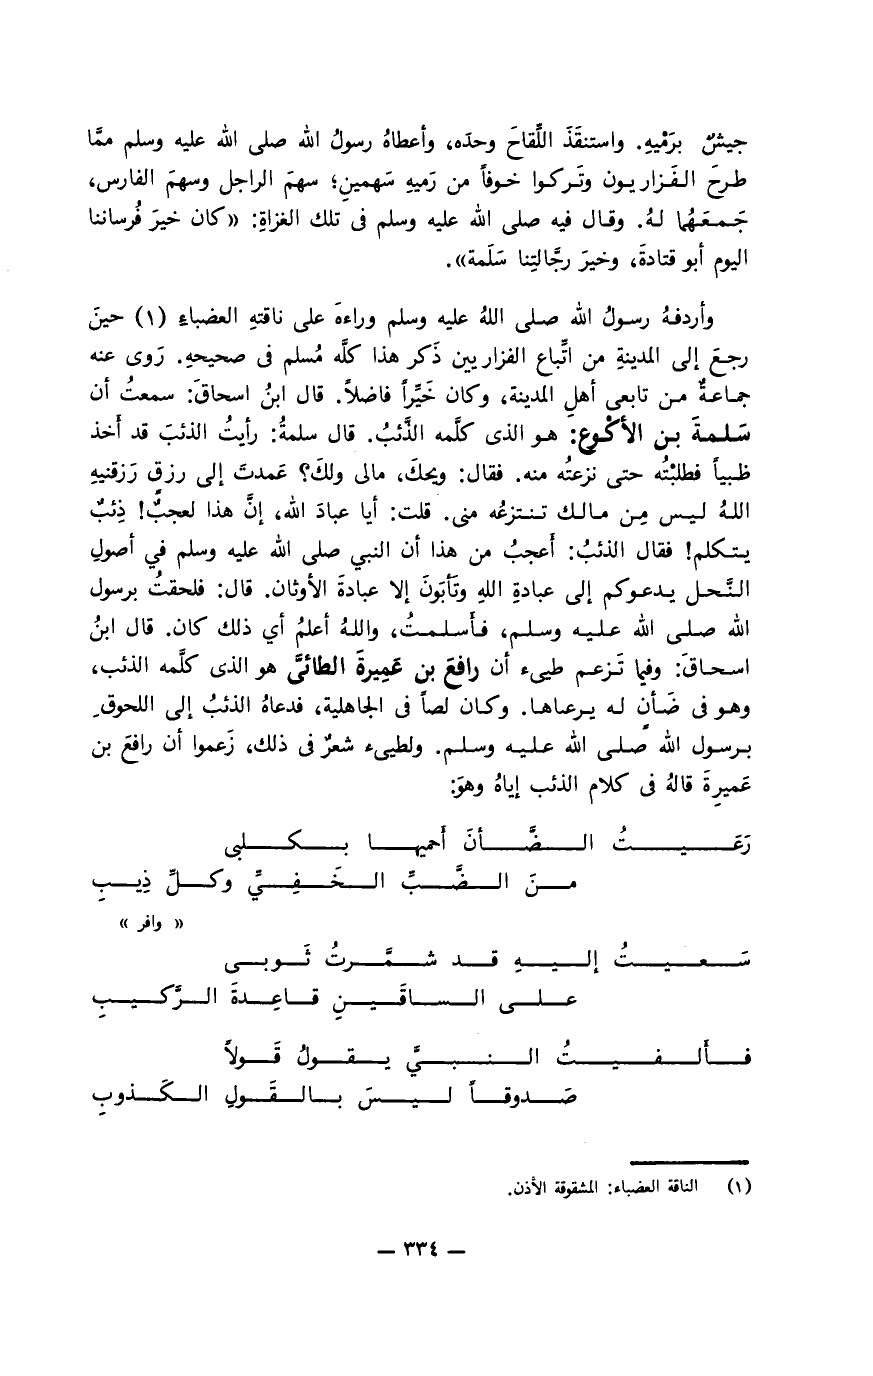 جيشٌ برَمْيهِ. واستنقَذَ اللِّقاحَ وحدَه، وأعطاهُ رسولُ الله صلى الله عليه وسلم ممَّا
طرحَ الفَزاريون وتَركوا خوفاً من رَميهِ سَهمينِ؛ سهمَ الراجل وسهمَ الفارس،
جَمعَهُما لهُ. وقال فيه صلى الله عليه وسلم فى تلك الغزاةِ: «كان خيرَ فُرساننا
اليوم أبو قتادةَ، وخيرَ رجَّالتِنا سَلَمة».
وأردفهُ رسولُ الله صلى اللهُ عليه وسلم وراءهَ على ناقتهِ العضباءِ (١) حينَ
رجعَ إلى المدينةِ من اتِّباع الفزاريين ذَكر هذا كلَّه مُسلم فى صحيحهِ. رَوى عنه
جماعةٌ من تابعى أهلِ المدينة، وكان خَيِّراً فاضلاً. قال ابنُ اسحاقَ: سمعتُ أن
سَلمةَ بن الأكْوعِ: هو الذى كلَّمه الذَّئبُ. قال سلمةُ: رأيتُ الذئبَ قد أَخذ
ظبياً فطلبْتُه حتى نزعتُه منه. فقال: ويحكَ، مالى ولكَ؟ عَمدتَ إلى رزقٍ رَزقنيهِ
اللهُ ليس مِن مالك تنتزعُه منى. قلت: أيا عبادَ الله، إنَّ هذا لعجبٌ! ذِئبٌ
يتكلم! فقال الذئبُ: أَعجبُ من هذا أن النبي صلى الله عليه وسلم في أصولِ
النَّحل يدعوكم إلى عبادةِ اللهِ وتَأبَونَ إلا عبادةَ الأوثان. قال: فلحقتُ برسول
الله صلى الله عليه وسلم، فأسلمتُ، واللهُ أعلمُ أي ذلك كان. قال ابنُ
اسحاقَ: وفيما تَزعم طيىء أن رافعَ بن عَمِيرةَ الطائىَّ هو الذى كلَّمه الذئب،
وهو فى ضَأنٍ له يرعاها. وكان لصاً فى الجاهلية، فدعاهُ الذئبُ إلى اللحوقِ
برسول الله صلى الله عليه وسلم. ولطيىء شعرٌ فى ذلك، زَعموا أن رافعَ بن
عَمِيرةَ قالهُ فى كلام الذئب إياهُ وهوَ:
رَعَيتُ الضَّأنَ أَحميها بكلبى
منَ الضَّبِّ الخَفِيِّ وكلِّ ذِيبِ
« وافر »
سَعيتُ إليهِ قد شمَّرتُ ثَوبى
على الساقَينِ قاعِدةَ الرَّكيبِ
فأَلفيتُ النبيَّ يقولُ قَولاً
صَدوقاً ليسَ بالقَولِ الكَذوبِ
(١) الناقة العضباء: المشقوقة الأذن.
– ٣٣٤ –